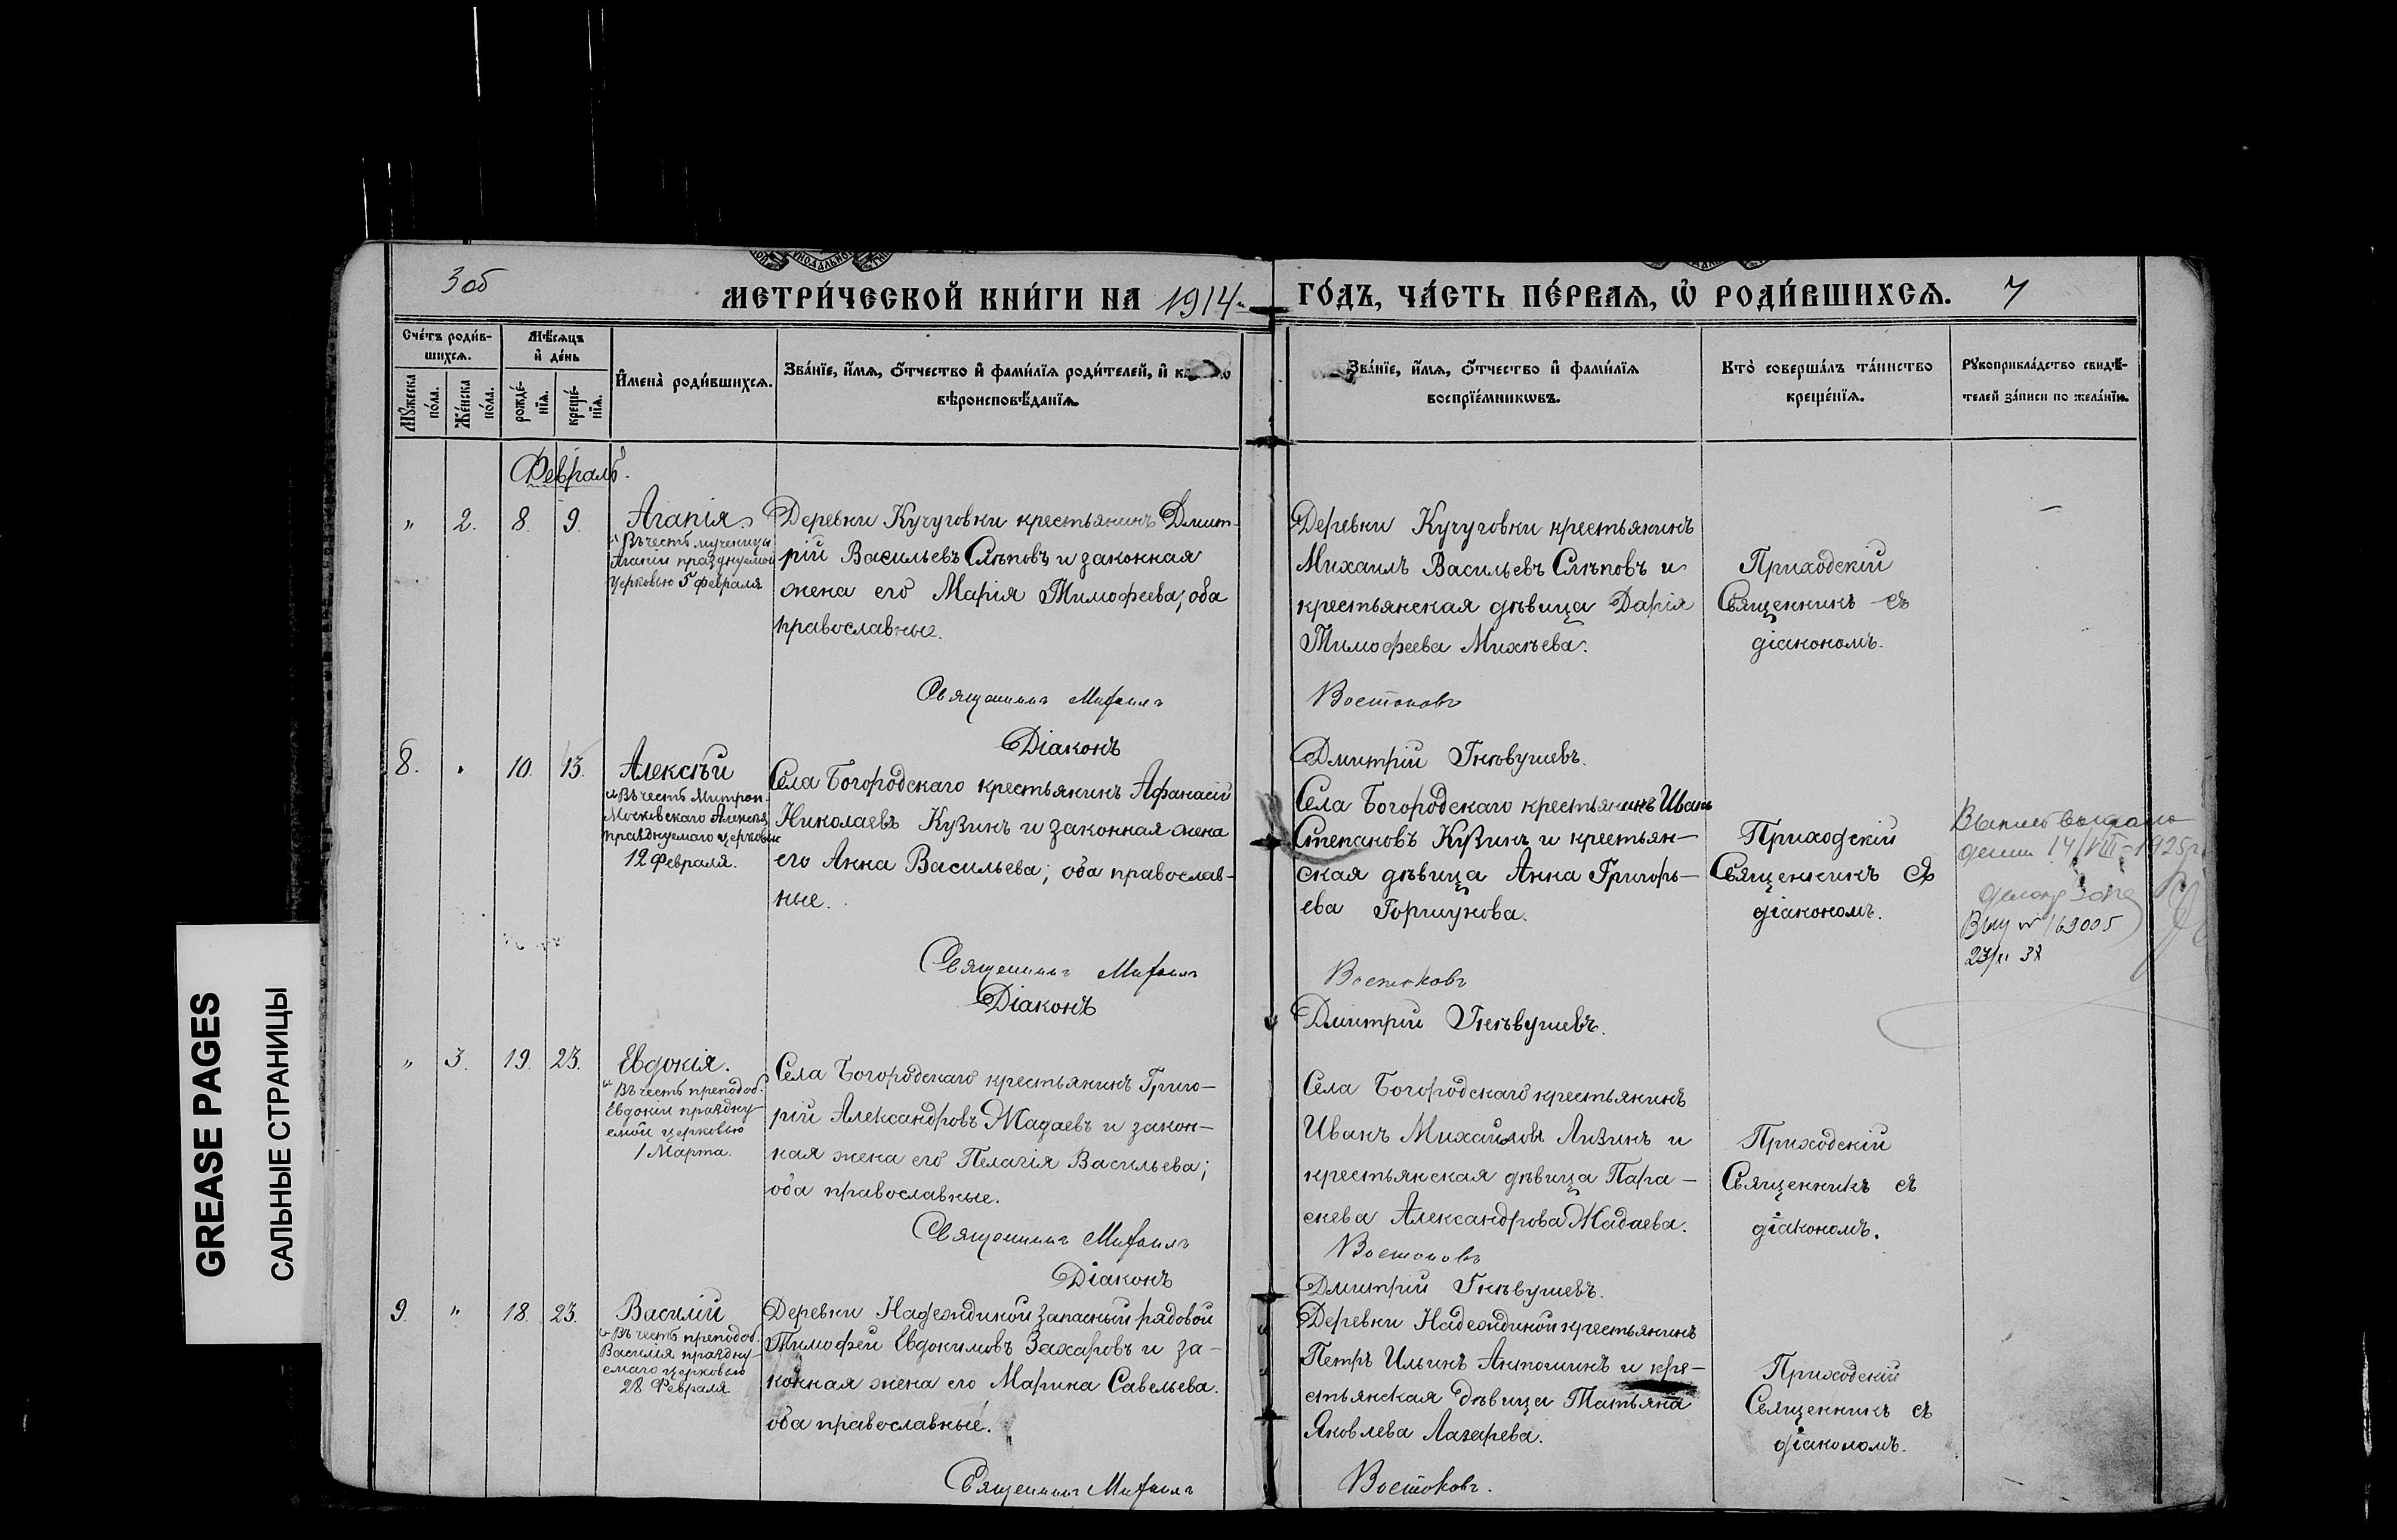 3об
МЕТРИ́ЧЕСКОЙ КНИ́ГИ НА 1914
ГО́ДЪ, ЧА́СТЬ ПЕ́РВАѦ, Ѽ РОДИ́ВШИХСѦ.
Сче́тъ роди́в-
шихсѧ.
Мѣ́сѧцъ
и҆ де́нь
Мꙋ́жеска
по́ла.
Же́нска
по́ла.
рожде́-
нїѧ.
креще́-
нїѧ.
И҆мена̀ роди́вшихсѧ.
Зва́нїе, и҆́мѧ, ѻ҆́тчество и҆ фами́лїѧ роди́телей, и҆
вѣроисповѣ́данїѧ.
Зва́нїе, и҆́мѧ, ѻ҆́тчество и҆ фами́лїѧ
воспрїе́мникѡвъ.
Кто̀ соверша́лъ та́инство
креще́нїѧ.
Рꙋкоприкла́дство свидѣ́-
телей за́писи по жела́нїю.
Февраль.
" 2. 8. 9.
Агапія.
Въ честь мученицы
Агапіи празднуемой
церковью 5 февраля
Деревни Кучуговки крестьянинъ Дмит-
рій Васильевъ Слѣповъ и законная
жена его Марія Тимофеева; оба
православные.
Священникъ Михаилъ
Діаконъ
Деревни Кучуговки крестьянинъ
Михаилъ Васильевъ Слѣповъ и
крестьянская дѣвица Дарія
Тимофеева Михѣева.
Востоковъ
Дмитрій Гнѣвушевъ.
Приходскій
Священникъ съ
діакономъ.
8. " 10. 13.
Алексѣй
Въ честь Митроп.
Московскаго Алексѣя
празднуемаго церковью
12 Февраля.
Села Богородскаго крестьянинъ Афанасій
Николаевъ Кузинъ и законная жена
его Анна Васильева; оба православ-
ные.
Священникъ Михаилъ
Діаконъ
Села Богородскаго крестьянинъ Иванъ
Степановъ Кузинъ и крестьян-
ская дѣвица Анна Григорь-
ева Горшунова.
Востоковъ
Дмитрій Гнѣвушевъ.
Приходскій
Священникъ съ
діакономъ.
14/VIII-1925г
169005
" 3. 19. 23.
Евдокія.
Въ честь преподоб.
Евдокіи праздну-
емой церковью
1 Марта.
Села Богородскаго крестьянинъ Григо-
рій Александровъ Мадаевъ и закон-
ная жена его Пелагія Васильева;
оба православные.
Священникъ Михаилъ
Діаконъ
Села Богородскаго крестьянинъ
Иванъ Михайловъ Лизинъ и
крестьянская дѣвица Пара-
скева Александрова Мадаева.
Востоковъ
Дмитрій Гнѣвушевъ.
Приходскій
Священникъ съ
діакономъ.
9. " 18. 23.
Василій
Въ честь преподоб.
Василія праздну-
емаго церковью
28 Февраля.
Деревни Надеждиной запасный рядовой
Тимофей Евдокимовъ Захаровъ и за-
конная жена его Марина Савельева.
оба православные.
Священникъ Михаилъ
Деревни Надеждиной крестьянинъ
Петръ Ильинъ Антошинъ и кре-
стьянская дѣвица Татьяна
Яковлева Лазарева.
Востоковъ.
Приходскій
Священникъ съ
діакономъ.
GREASE PAGES
САЛЬНЫЕ СТРАНИЦЫ